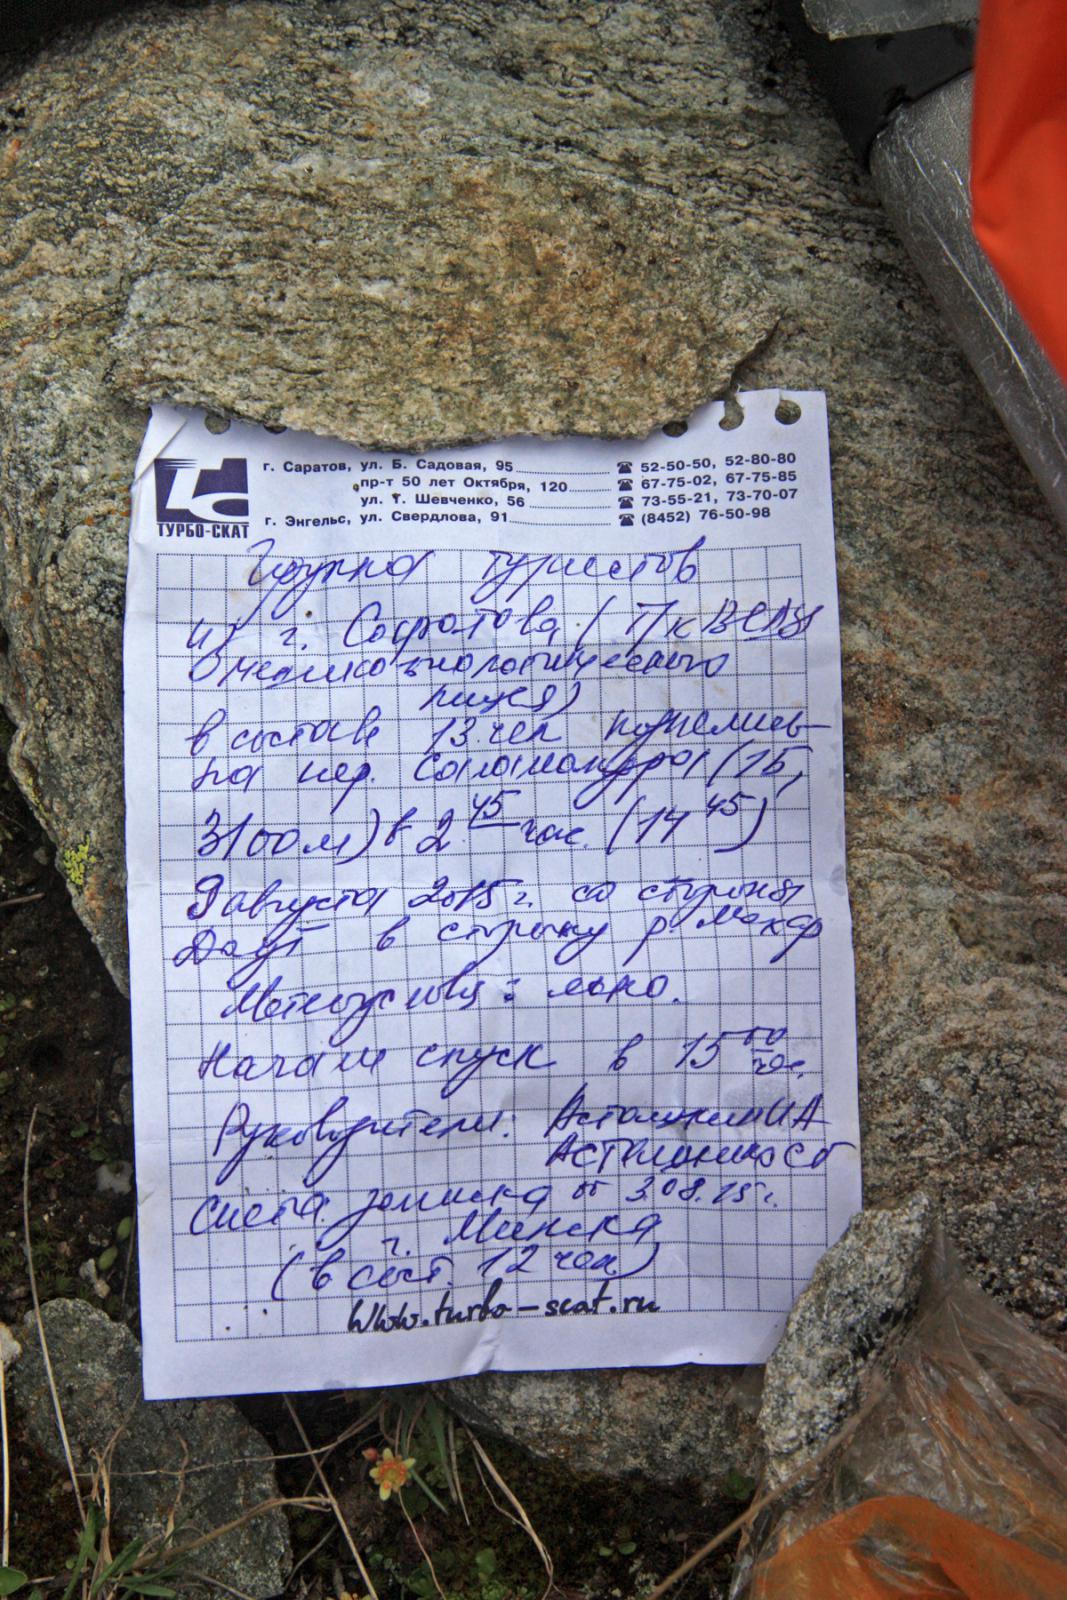 г. Саратов, ул. Б. Садовая, 95 ☎ 52-50-50, 52-80-80
пр-т 50 лет Октября, 120 ☎ 67-75-02, 67-75-85
ул. Т. Шевченко, 56 ☎ 73-55-21, 73-70-07
г. Энгельс, ул. Свердлова, 91 ☎ (8452) 76-50-98
ТУРБО-СКАТ
Группа туристов
из г. Саратова (Т/к
Медикобиологического
лицея)
в составе 13 чел поднялись
на пер. Саламандра (1Б,
3100м) в 2 45 час. (14 45)
9 августа 2015 г. со стороны
Даут в сторону р. Махар
Метеоусловия: ясно.
Начали спуск в 15 00 час.
Руководители:
Снята записка от 3.08.15 г.
г. Минска
(в сост. 12 чел)
www.turbo-scat.ru